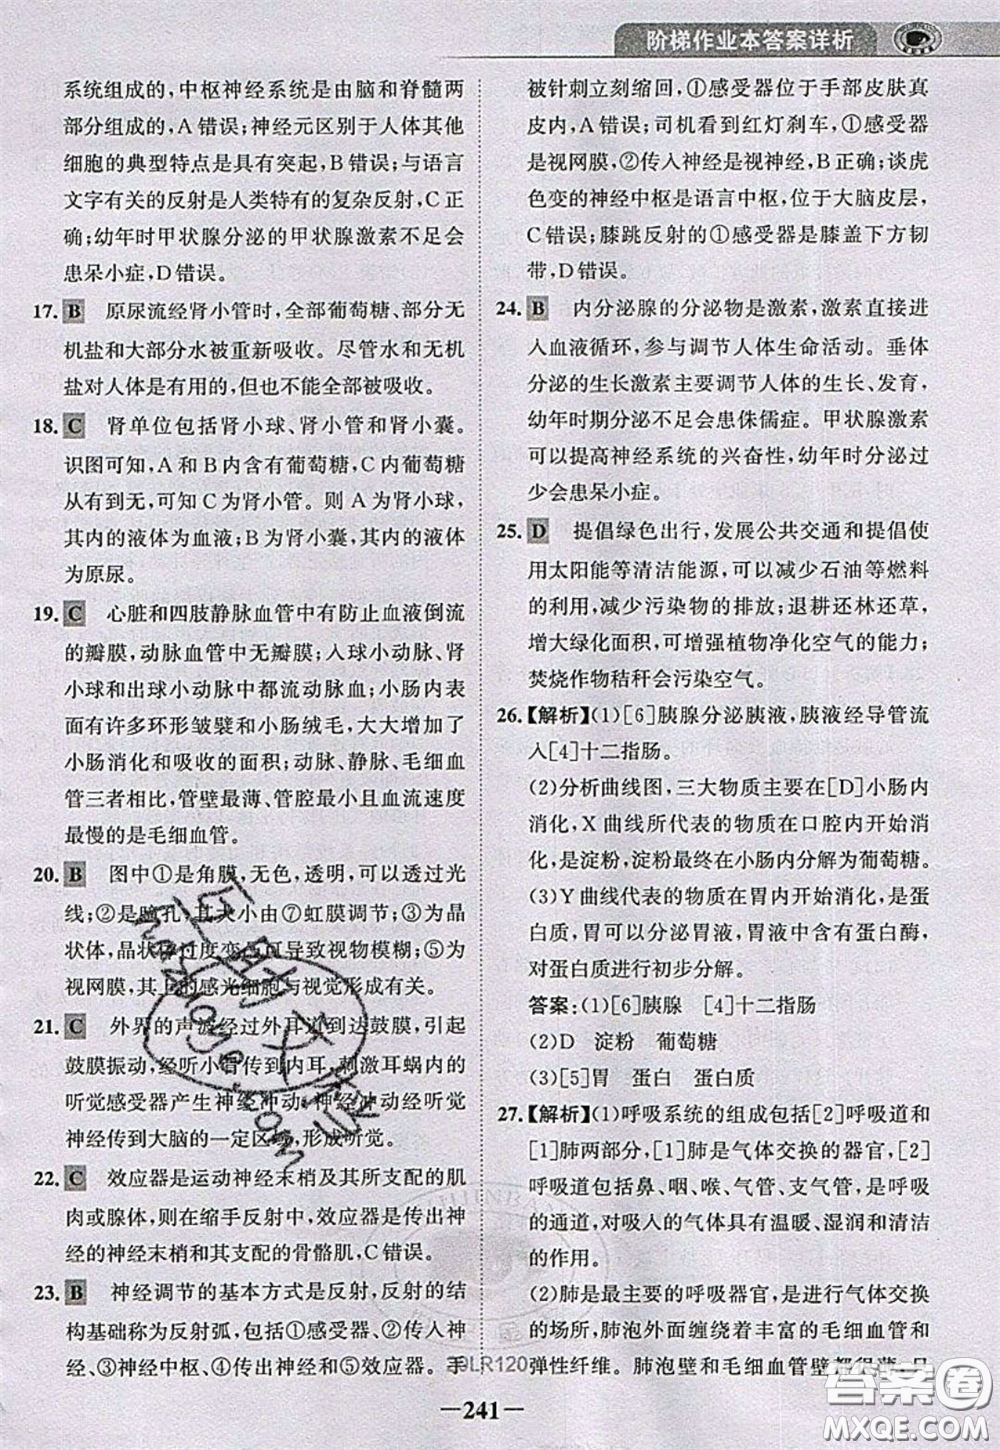 阶梯作业本答案详析
系统组成的,中枢神经系统是由脑和脊髓两
部分组成的,A错误;神经元区别于人体其他
细胞的典型特点是具有突起,B错误;与语言
文字有关的反射是人类特有的复杂反射,C正
确;幼年时甲状腺分泌的甲状腺激素不足会
患呆小症,D错误。
17. B 原尿流经肾小管时,全部葡萄糖、部分无
机盐和大部分水被重新吸收。尽管水和无机
盐对人体是有用的,但不能全部被吸收。
18. C 肾单位包括肾小球、肾小管和肾小囊。
识图可知,A和B内含有葡萄糖,C内葡萄糖
从有到无,可知C为肾小管。则A为肾小球,
其内的液体为血液;B为肾小囊,其内的液体
为原尿。
19. C 心脏和四肢静脉血管中有防止血液倒流
的瓣膜,动脉血管中无瓣膜;入球小动脉、肾
小球和出球小动脉中都流动脉血;小肠内表
面有许多环形皱襞和小肠绒毛,大大增加了
小肠消化和吸收的面积;动脉、静脉、毛细血
管三者相比,管壁最薄、管腔最小且血流速度
最慢的是毛细血管。
20. B 图中①是角膜,无色,透明,可以透过光
线;②是瞳孔,其大小由⑦虹膜调节;③为晶
状体,晶状体过度变凸可导致视物模糊;⑤为
视网膜,其上的感光细胞与视觉形成有关。
21. C 外界的声波经过外耳道到达鼓膜,引起
鼓膜振动,经听小骨传到内耳,刺激耳蜗内的
听觉感受器产生神经冲动,神经冲动经听觉
神经传到大脑的一定区域,形成听觉。
22. C 效应器是运动神经末梢及其所支配的肌
肉或腺体,则在缩手反射中,效应器是传出神
经的神经末梢和其支配的骨骼肌,C错误。
23. B 神经调节的基本方式是反射,反射的结
构基础称为反射弧,包括①感受器、②传入神
经、③神经中枢、④传出神经和⑤效应器。手
被针刺立刻缩回,①感受器位于手部皮肤真
皮内,A错误;司机看到红灯刹车,①感受器
是视网膜,②传入神经是视神经,B正确;谈虎
色变的神经中枢是语言中枢,位于大脑皮层,
C错误;膝跳反射的①感受器在膝盖下方韧
带,D错误。
24. B 内分泌腺的分泌物是激素,激素直接进
入血液循环,参与调节人体生命活动。垂体
分泌的生长激素主要调节人体的生长、发育,
幼年时期分泌不足会患侏儒症。甲状腺激素
可以提高神经系统的兴奋性,幼年时分泌过
过少会患呆小症。
25. D 提倡绿色出行,发展公共交通和提倡使
用太阳能等清洁能源,可以减少石油等燃料
的利用,减少污染物的排放;退耕还林还草,
增大绿化面积,可增强植物净化空气的能力;
焚烧作物秸秆会污染空气。
26.【解析】(1)[6]胰腺分泌胰液,胰液经导管流
入[4]十二指肠。
(2)分析曲线图,三大物质主要在[D]小肠内
消化,X曲线所代表的物质在口腔内开始消
化,是淀粉,淀粉最终在小肠内分解为葡萄糖。
(3)Y曲线代表的物质在胃内开始消化,是蛋
白质,胃可以分泌胃液,胃液中含有蛋白酶,
对蛋白质进行初步分解。
答案:(1)[6]胰腺 [4]十二指肠
(2)D 淀粉 葡萄糖
(3)[5]胃 蛋白 蛋白质
27.【解析】(1)呼吸系统的组成包括[2]呼吸道和
[1]肺两部分,[1]肺是气体交换的器官,[2]
呼吸道包括鼻、咽、喉、气管、支气管,是气体
的通道,对吸入的气体具有温暖、湿润和清洁
的作用。
(2)[1]肺是主要的呼吸器官,是气体交换的
场所,肺泡外面缠绕着丰富的毛细血管和
弹性纤维。肺泡壁和毛细血管壁都很薄,只
LR120
241
答案圈
MXQE.COM